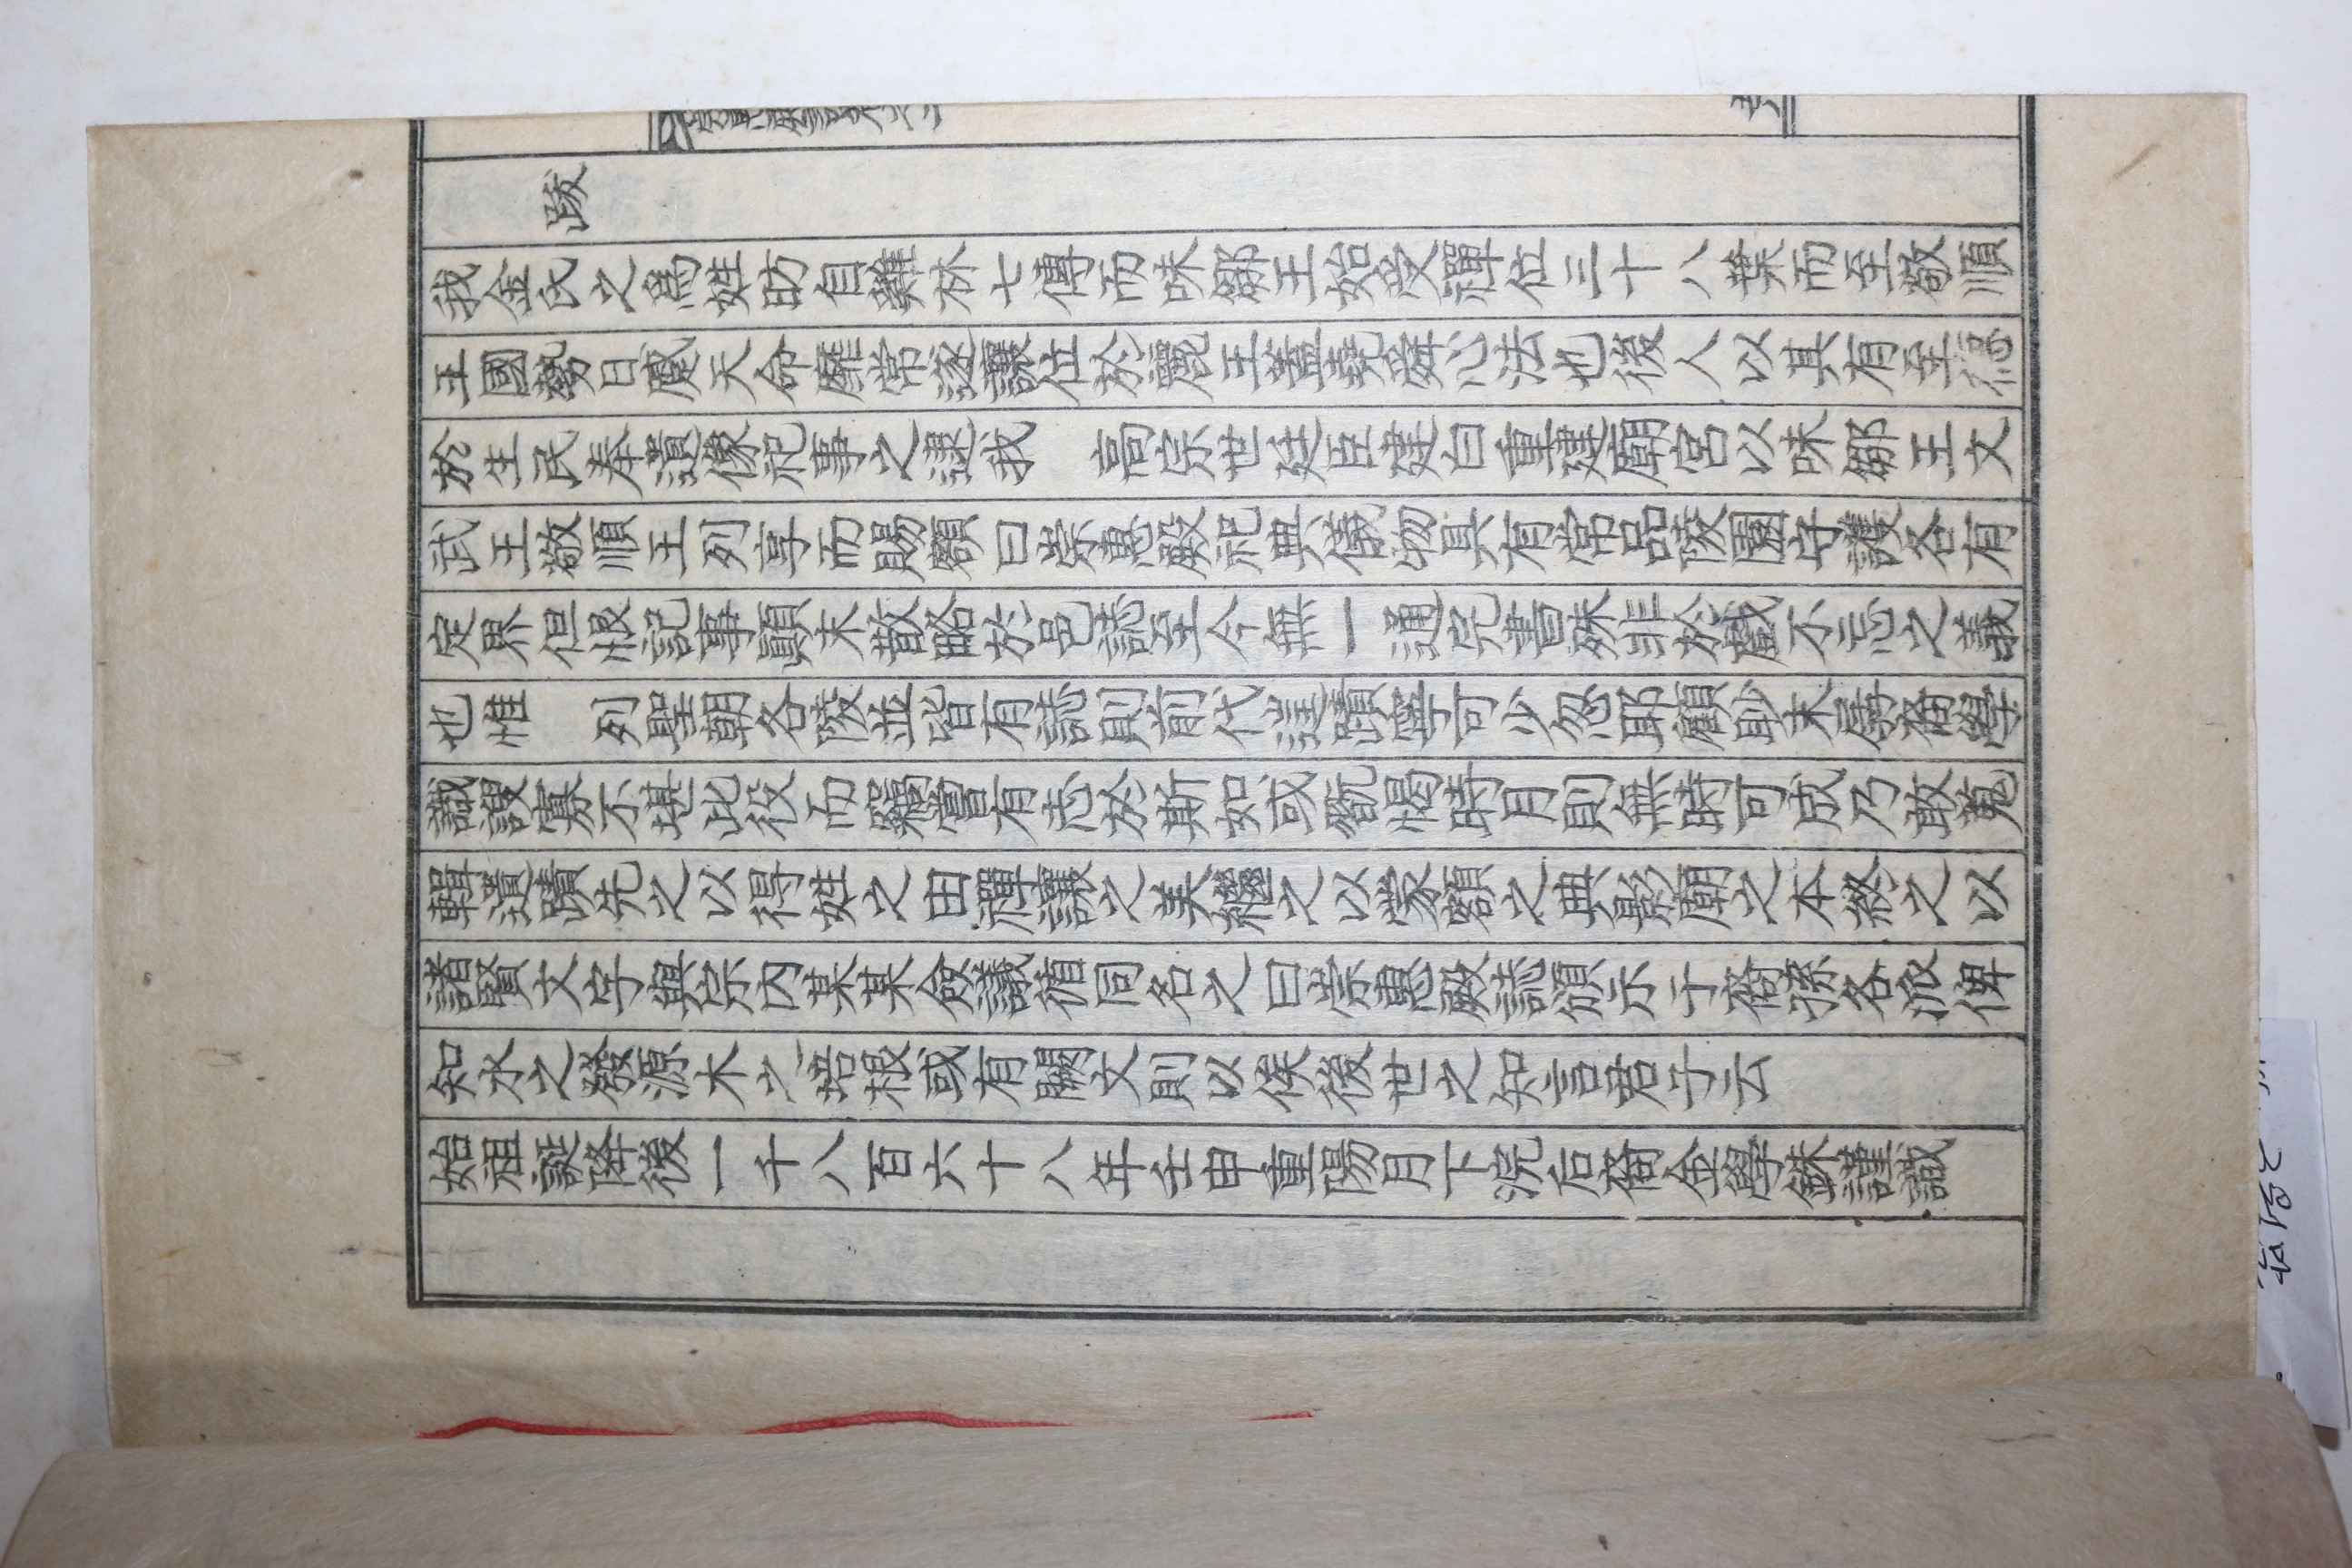 跋
我金氏之爲姓昉自雞林七傳而味鄒王始受禪位三十八葉而至敬順
王國勢日蹙天命靡常遂讓位於麗王蓋堯舜心法也後人以其有至德
於生民奉遺像祀事之逮我　高宗世廷臣建白重建廟宮以味鄒王文
武王敬順王列享而賜額曰崇惠殿祀典儀物具有常品陵園守護各有
定界但恨記事顚末散略於邑誌至今無一通完書殊非於戱不忘之義
也惟　列聖朝各陵並皆有誌則前代遑蹟寧可少忽耶顧眇末孱裔學
識謏寡不堪此役而竊嘗有志於斯如或翫愒時月則無時可成乃敢蒐
輯遺蹟先之以得姓之由禪讓之美繼之以蒙額之典影廟之本終之以
諸賢文字與宗內某某僉議循同名之曰崇惠殿誌頒示于裔孫各派俾
知水之發源木之培根或有闕文則以俟後世之知言君子云
始祖誕降後一千八百六十八年壬申重陽月下浣后裔金學銖謹識